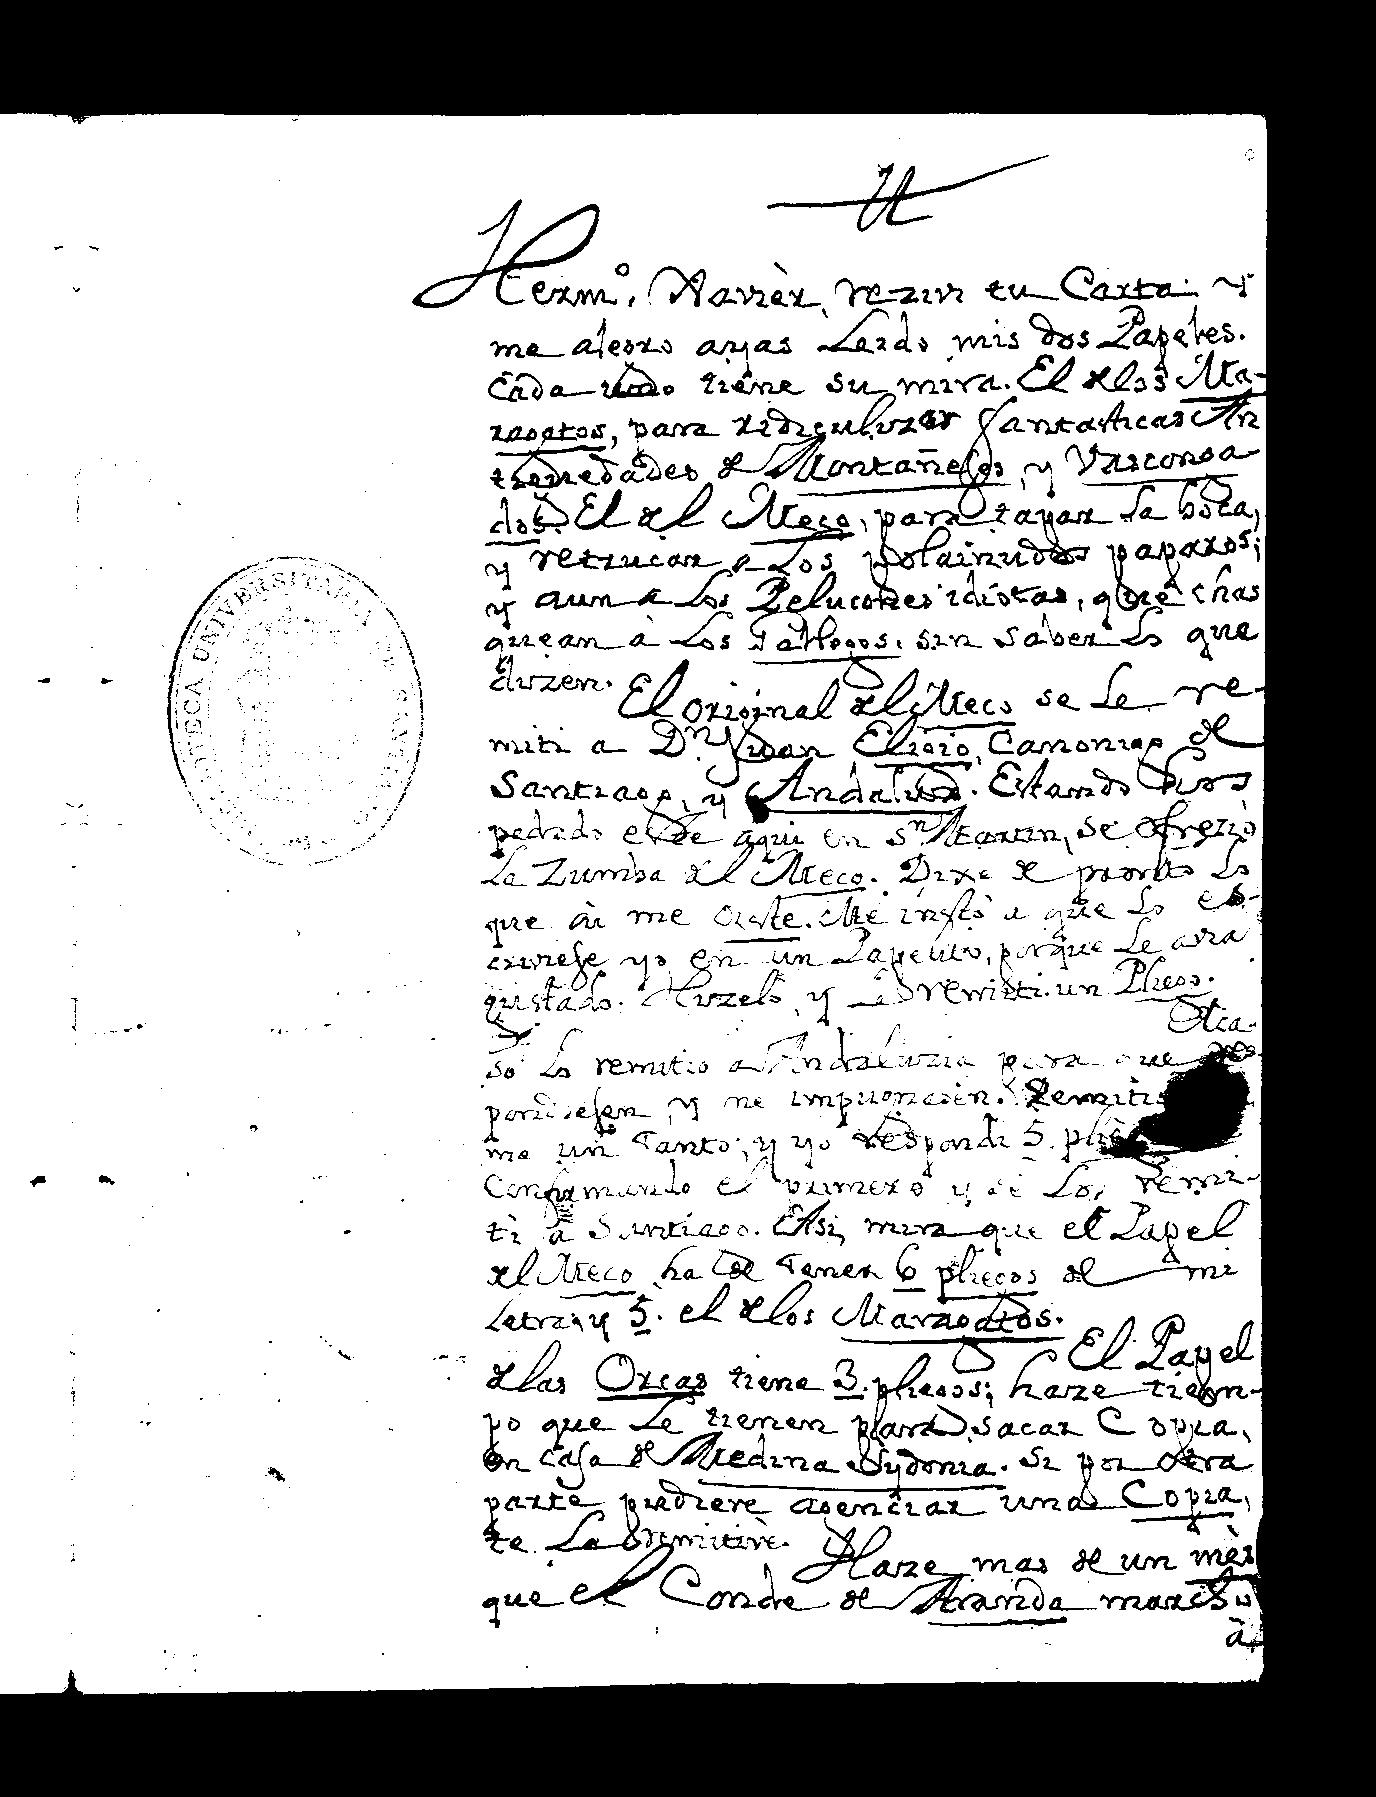 Hermº. Xavièr, rezivi tu Carta: y
me alegro ayas Leido mis dos Papeles.
Cada uno tiene su mira. El de los Ma-
ragatos, para ridiculizar fantasticas An
tiguedades de Montañeses, y Vasconga-
dos. El del Meco, para tapar la boca,
y retrucar a Los polainudos paparos;
y aun a Los Pelucones idiotas, que chas
quean à Los Gallegos, sin saber Lo que
dizen.
El original del Meco se Le re-
miti a Dn. Juan Eligio, Canonigo de
Santiago, y Andaluz. Estando hos
pedado este aqui en Sn. Martin, se ofreziò
La Zumba del Meco. Dixe de pronto Lo
que ai me oiste. Me instò a que Lo es-
criviese yo en un Papelito, porque Le avia
gustado. Hizelo, y Le remiti un Pliego.
Aca-
so Lo remitio a Andaluzia para que res-
pondiesen, y me impugnasen. Remitio
me un Tanto; y yo respondi 5. plie
Confirmando el primero y se Los remi-
ti à Santiago. Asi, mira que el Papel
del Meco ha de Tener 6 pliegos de mi
Letra, y 5. el de los Maragatos.
El Papel
de las Orcas tiene 3. pliegos; haze tiem-
po que Le tienen para sacar Copia,
en casa de Medina Sydonia. Si por otra
parte pudiere agenciar una Copia,
te La remitirè.
Haze mas de un mès
que el Conde de Aranda marchò
à
BIBLIOTECA UNIVERSITARIA DE SANTIAGO